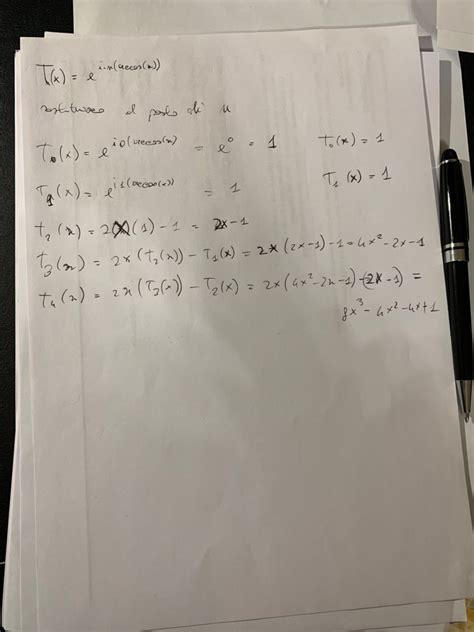 T(x) = e^{i·n(arccos(x))}
sostituisco al posto di n
T₀(x) = e^{i0(arccos(x)} = e⁰ = 1 T₀(x) = 1
T₁(x) = e^{i1(arccos(x))} = 1 T₁(x) = 1
T₂(x) = 2(x)(1) - 1 = 2x - 1
T₃(x) = 2x(T₂(x)) - T₁(x) = 2x(2x-1) - 1 = 4x² - 2x - 1
T₄(x) = 2x(T₃(x)) - T₂(x) = 2x(4x² - 2x - 1) - (2x - 1) =
8x³ - 4x² - 4x + 1